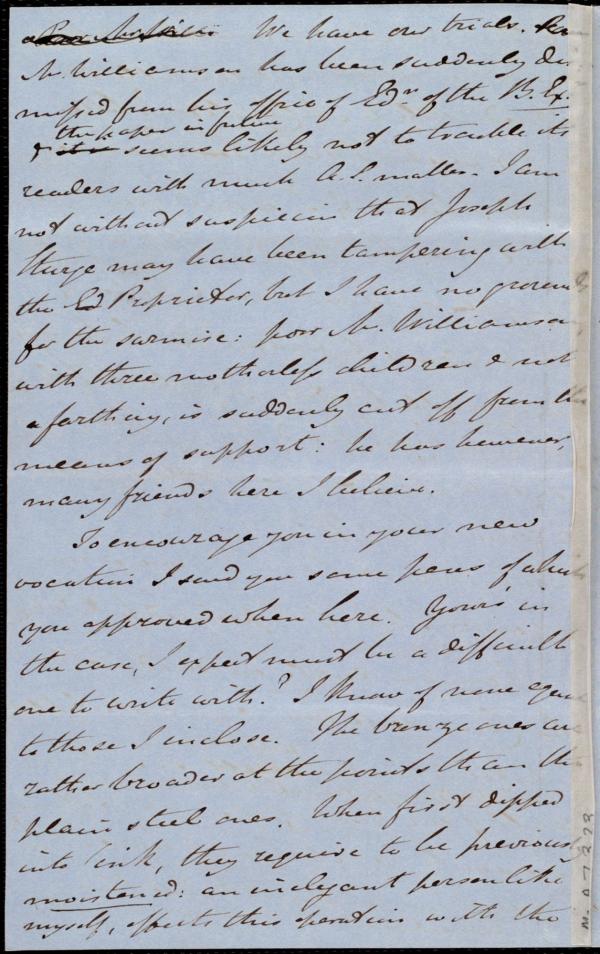 We have our trials.
Mr. Williamson has been suddenly dis
missed from his office of Edr. of the B. Ex.
the paper in future
& it seems likely not to trouble its
readers with much A.S. matter. I am
not without suspicion that Joseph
Sturge may have been tampering with
the Ed Proprietor, but I have no grounds
for the surmise: poor Mr. Williamson,
with three motherless children & not
a farthing, is suddenly cut off from the
means of support: he has however,
many friends here I believe.
To encourage you in your new
vocation I send you some pens of which
you approved when here. Yours in
the case, I expect must be a difficult
one to write with.? I know of none equal
to those I inclose. The bronze ones are
rather broader at the points than the
plain steel ones. When first dipped
into ink, they require to be previously
moistened: an inelegant person like
myself, effects this operation with the